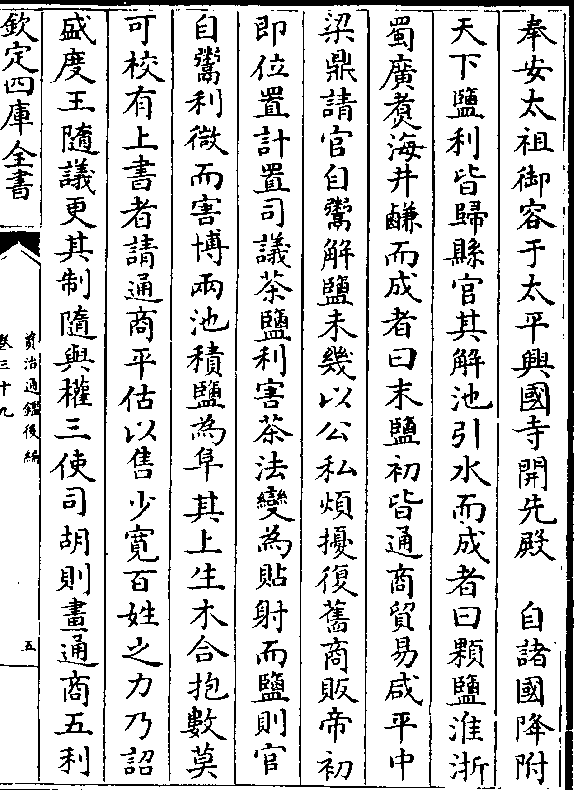 奉安太祖御容于太平興國寺開先殿　自諸國降附
天下鹽利皆歸縣官其解池引水而成者曰顆鹽淮浙
蜀廣煑海井鹻而成者曰末鹽初皆通商貿易咸平中
梁鼎請官自鬻解鹽未幾以公私煩擾復舊商販帝初
即位置計置司議茶鹽利害茶法變為貼射而鹽則官
自鬻利微而害博兩池積鹽為阜其上生木合抱數莫
可校有上書者請通商平估以售少寛百姓之力乃詔
盛度王隨議更其制隨與權三使司胡則畫通商五利
欽定四庫全書
資治通鑑後編
卷三十九
五